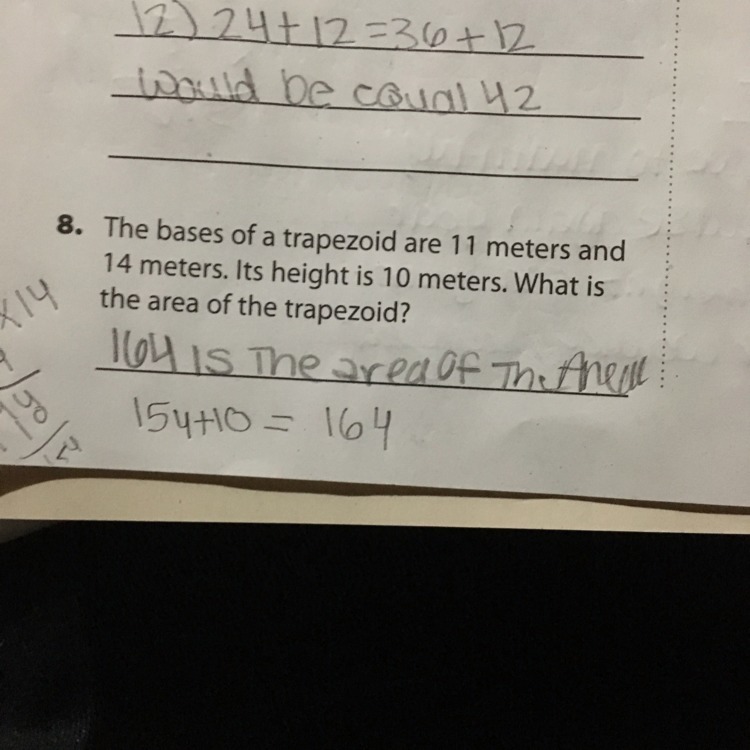 12) 24+12=36+12
would be equal 42
8. The bases of a trapezoid are 11 meters and
14 meters. Its height is 10 meters. What is
the area of the trapezoid?
164 is The area of The
154+10 = 164
x14